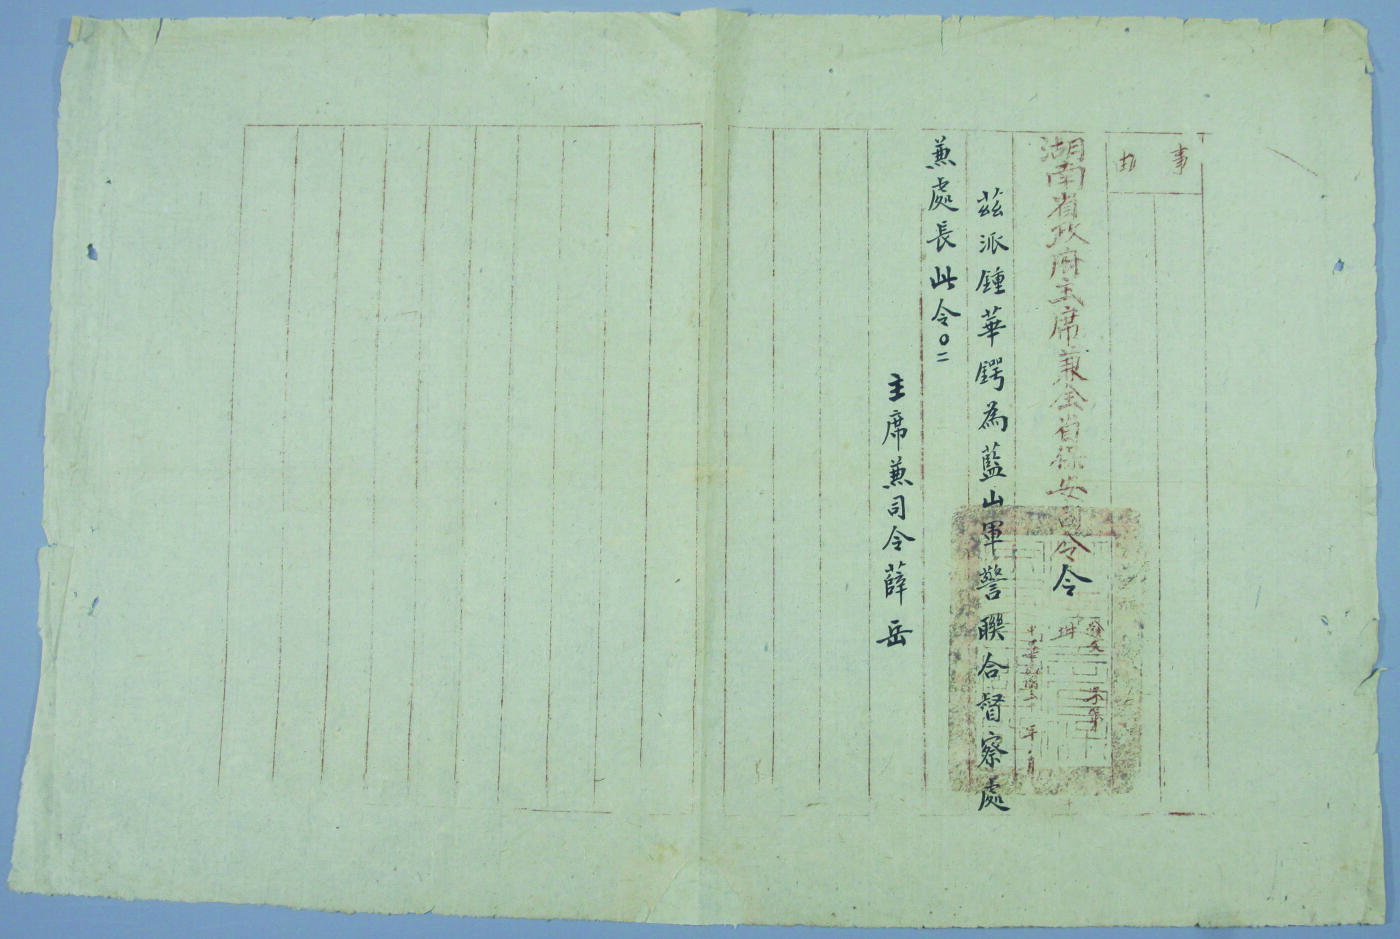 事由
湖南省政府主席兼全省保安司令令
發文 字第
中華民國三十 年 月
茲派鍾華鍔為藍山軍警聯合督察處
兼處長此令〇二
主席兼司令薛岳